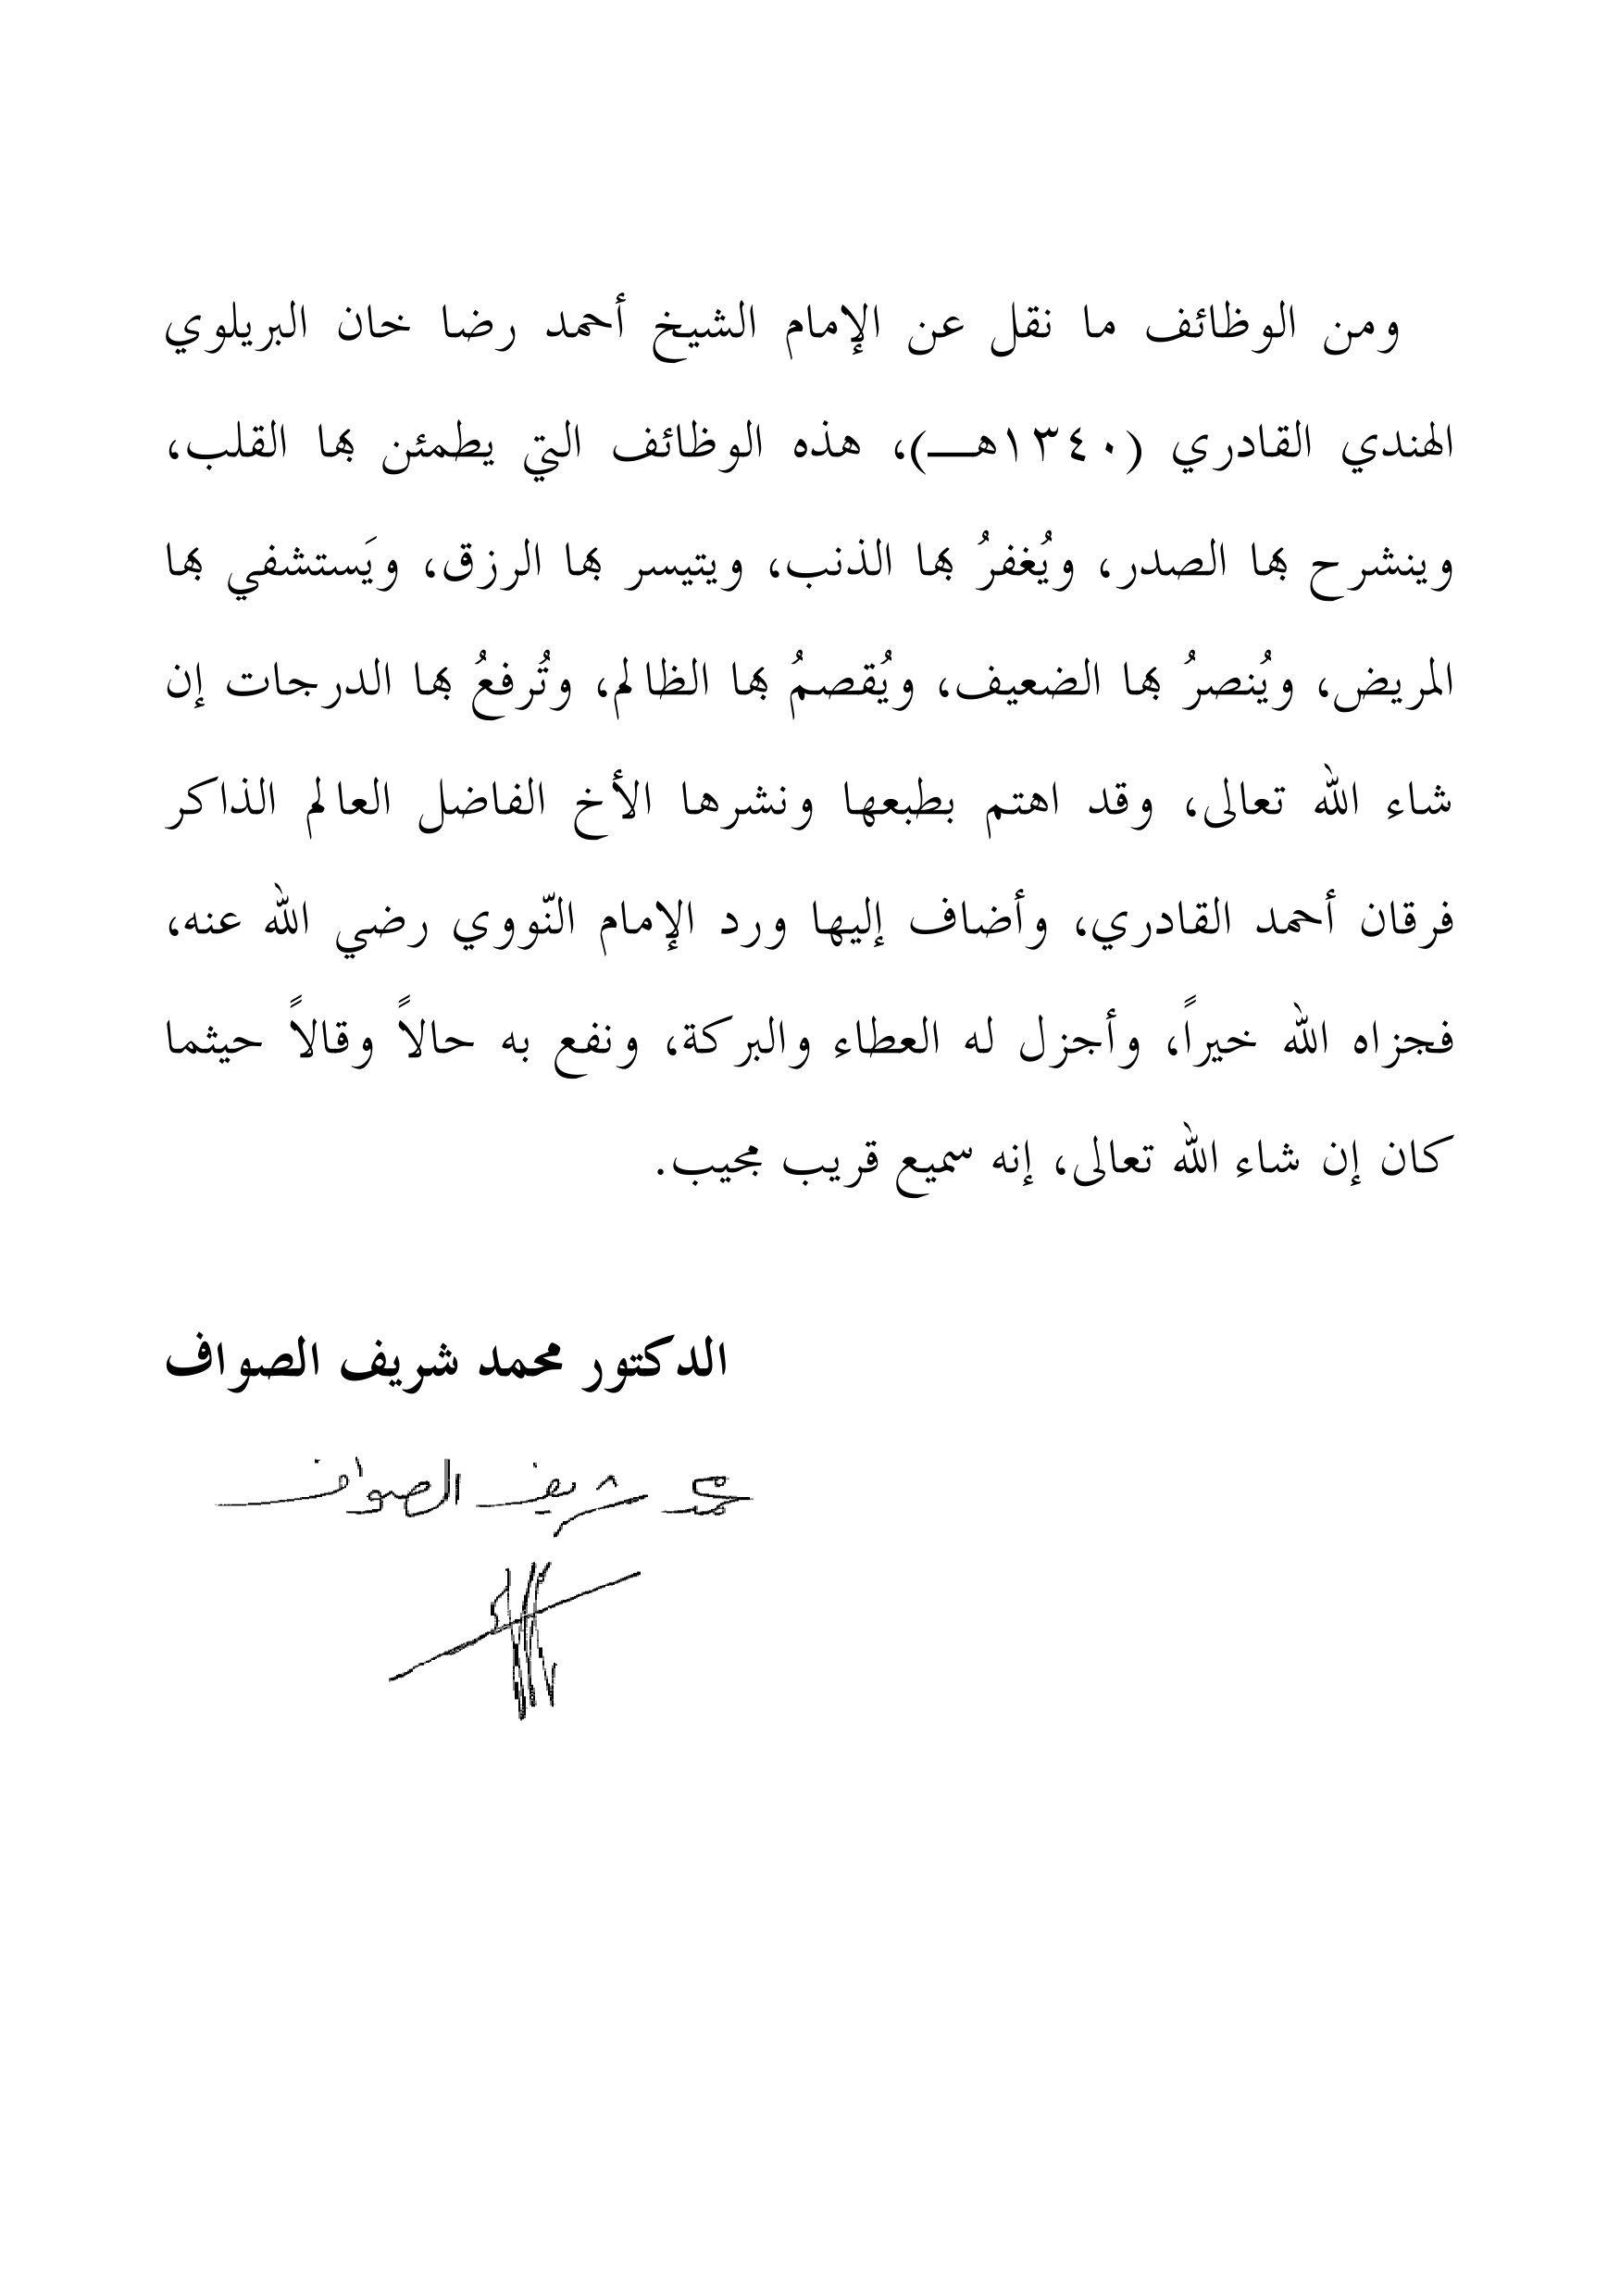 ومن الوظائف ما نقل عن الإمام الشيخ أحمد رضا خان البريلوي
الهندي القادري (١٣٤٠هـــ)، هذه الوظائف التي يطمئن بها القلب،
وينشرح بها الصدر، ويُغفرُ بها الذنب، ويتيسر بها الرزق، ويَستشفي بها
المريض، ويُنصرُ بها الضعيف، ويُقصمُ بها الظالم، وتُرفعُ بها الدرجات إن
شاء الله تعالى، وقد اهتم بطبعها ونشرها الأخ الفاضل العالم الذاكر
فرقان أحمد القادري، وأضاف إليها ورد الإمام النّووي رضي الله عنه،
فجزاه الله خيراً، وأجزل له العطاء والبركة، ونفع به حالاً وقالاً حيثما
كان إن شاء الله تعالى، إنه سميع قريب مجيب.
الدكتور محمد شريف الصواف
محمد شريف الصواف